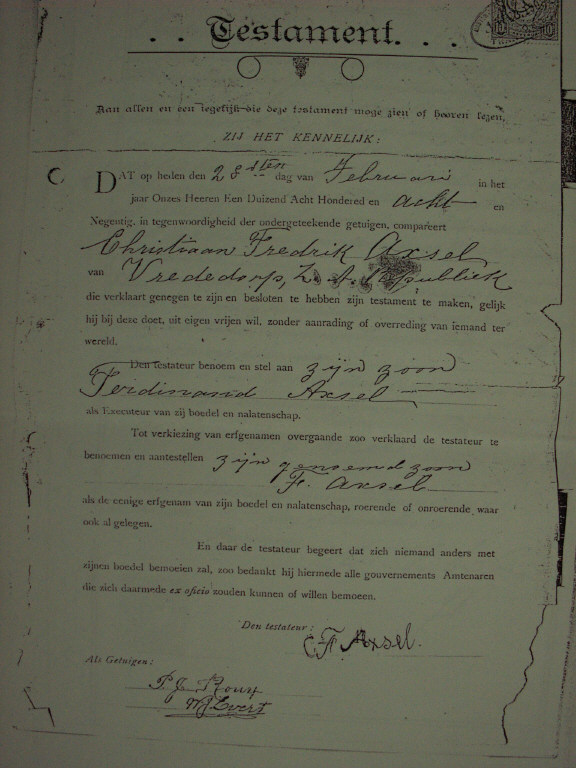 Testament.
Aan allen en een iegelijk die deze testament moge zien of hooren lezen,
ZIJ HET KENNELIJK:
DAT op heden den 28sten dag van Februari in het
jaar Onzes Heeren Een Duizend Acht Hondered en acht en
Negentig, in tegenwoordigheid der ondergeteekende getuigen, compareert
Christiaan Fredrik Axsel
van Vrededorp, Z. A. Republiek
die verklaart genegen te zijn en besloten te hebben zijn testament te maken, gelijk
hij bij deze doet, uit eigen vrijen wil, zonder aanrading of overreding van iemand ter
wereld.
Den testateur benoem en stel aan zijn zoon
Ferdinand Axsel
als Executeur van zij boedel en nalatenschap.
Tot verkiezing van erfgenamen overgaande zoo verklaard de testateur te
benoemen en aantestellen zijn genoemd zoon
F. Axsel
als de eenige erfgenam van zijn boedel en nalatenschap, roerende of onroerende, waar
ook al gelegen.
En daar de testateur begeert dat zich niemand anders met
zijnen boedel bemoeien zal, zoo bedankt hij hiermede alle gouvernements Amtenaren
die zich daarmede ex oficio zouden kunnen of willen bemoeen.
Den testateur:
C F Axsel.
Als Getuigen:
P. J.
Evert